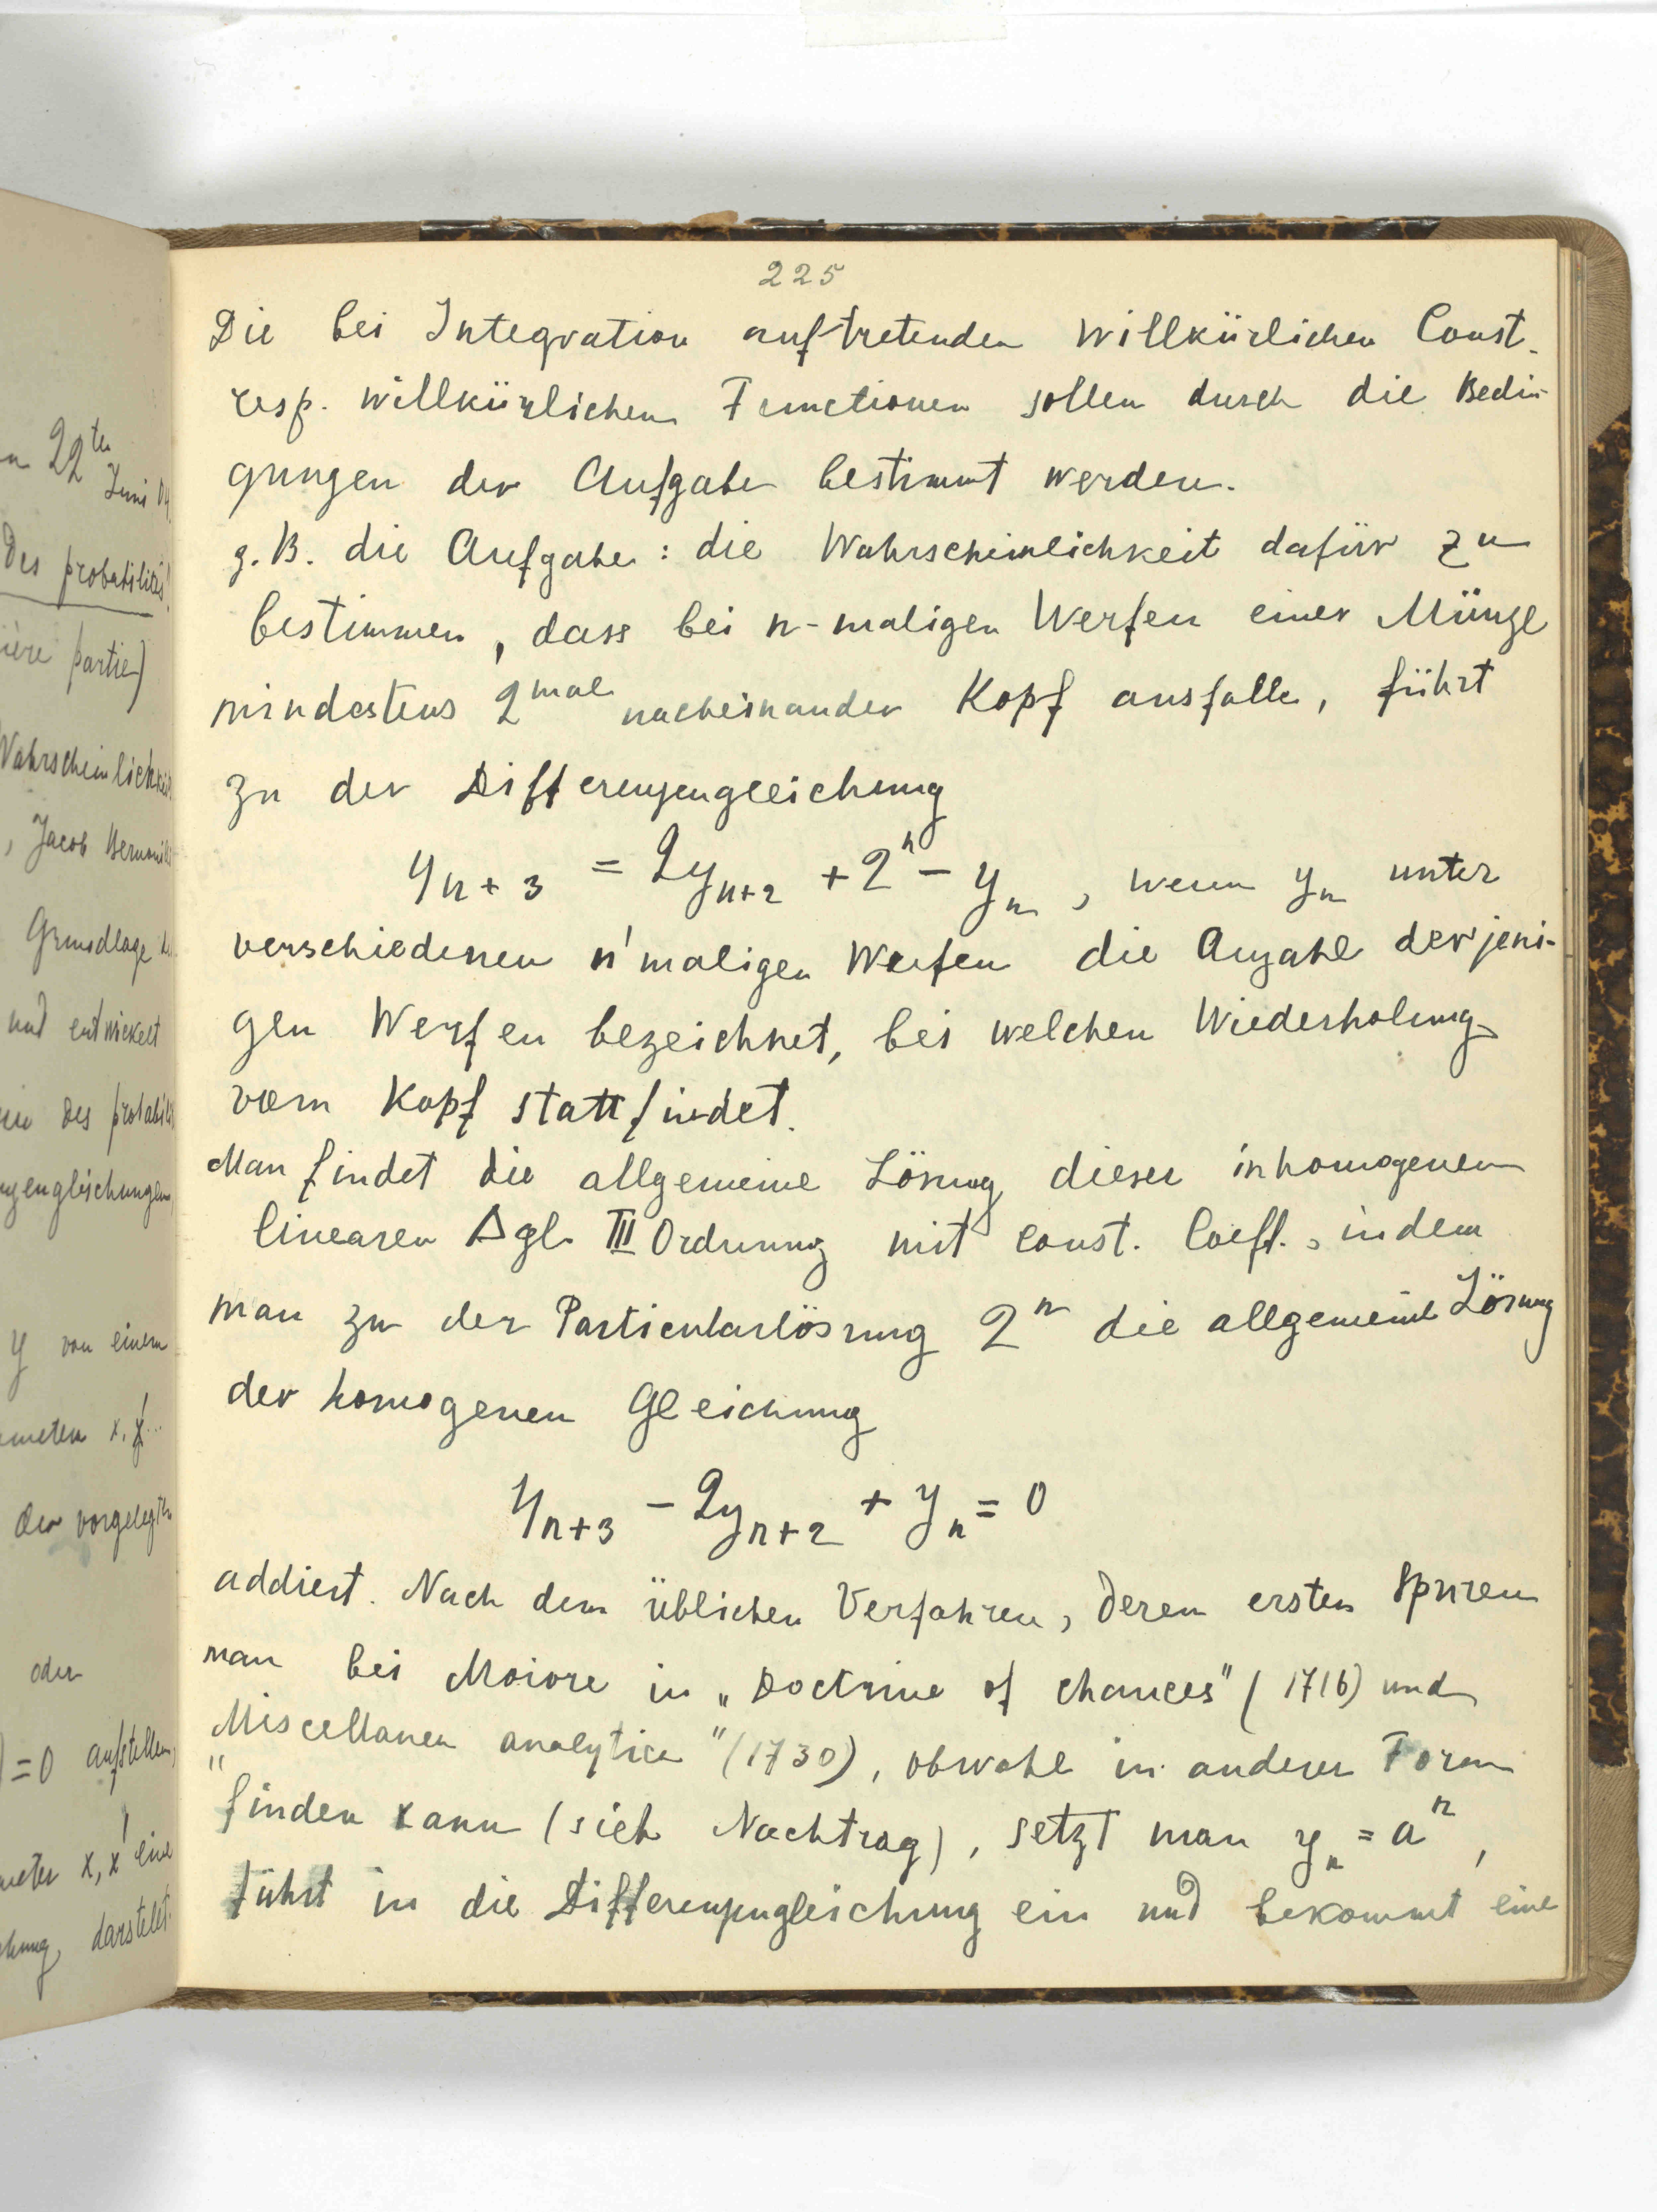 n 22ten
Juni 04.
des probabilités!
ière partie)
Wahrscheinlichkeit
, Jacob Bernoulli
Grundlage
und entwickelt
des probabili
engleichungen,
y von einem
x, x'...
der vorgelegten
oder
) = 0 aufstellen,
x, x' eine
darstellt.
225
Die bei Integration auftretenden willkürlichen Const.
resp. willkürlichen Functionen sollen durch die Bedin-
gungen der Aufgabe bestimmt werden.
z. B. die Aufgabe: die Wahrscheinlichkeit dafür zu
bestimmen, dass bei n-maligen Werfen einer Münze
mindestens 2mal nacheinander Kopf ausfalle, führt
zu der Differenzengleichung
yₙ₊₃ = 2yₙ₊₂ + 2ⁿ − yₙ, wenn yₙ unter
verschiedenen n'maligen Werfen die Anzahl derjeni-
gen Werfen bezeichnet, bei welchen Wiederholung
vom Kopf stattfindet.
Man findet die allgemeine Lösung dieser inhomogenen
linearen Δgl. III Ordnung mit const. Coeff., indem
man zu der Particularlösung 2ⁿ die allgemeine Lösung
der homogenen Gleichung
yₙ₊₃ − 2yₙ₊₂ + yₙ = 0
addiert. Nach dem üblichen Verfahren, deren ersten Spuren
man bei Moivre in „Doctrine of chances" (1716) und
„Miscellanea analytica" (1730), obwohl in anderer Form
finden kann (sieh Nachtrag), setzt man yₙ = aⁿ,
führt in die Differenzengleichung ein und bekommt eine